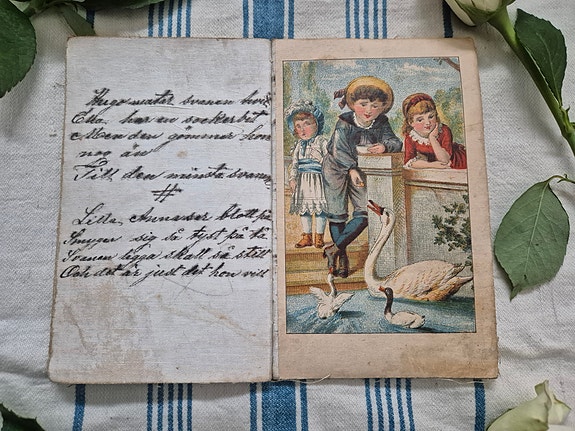 Hugo matar svanen hvit
Ella har en sockerbit
Men den gömmer hon
nog än
Till den minsta svanen
#
Lilla Anna ser blott på
Smyger sig så tyst på tå
Svanen ligga skall så still
Och det är just det hon vill